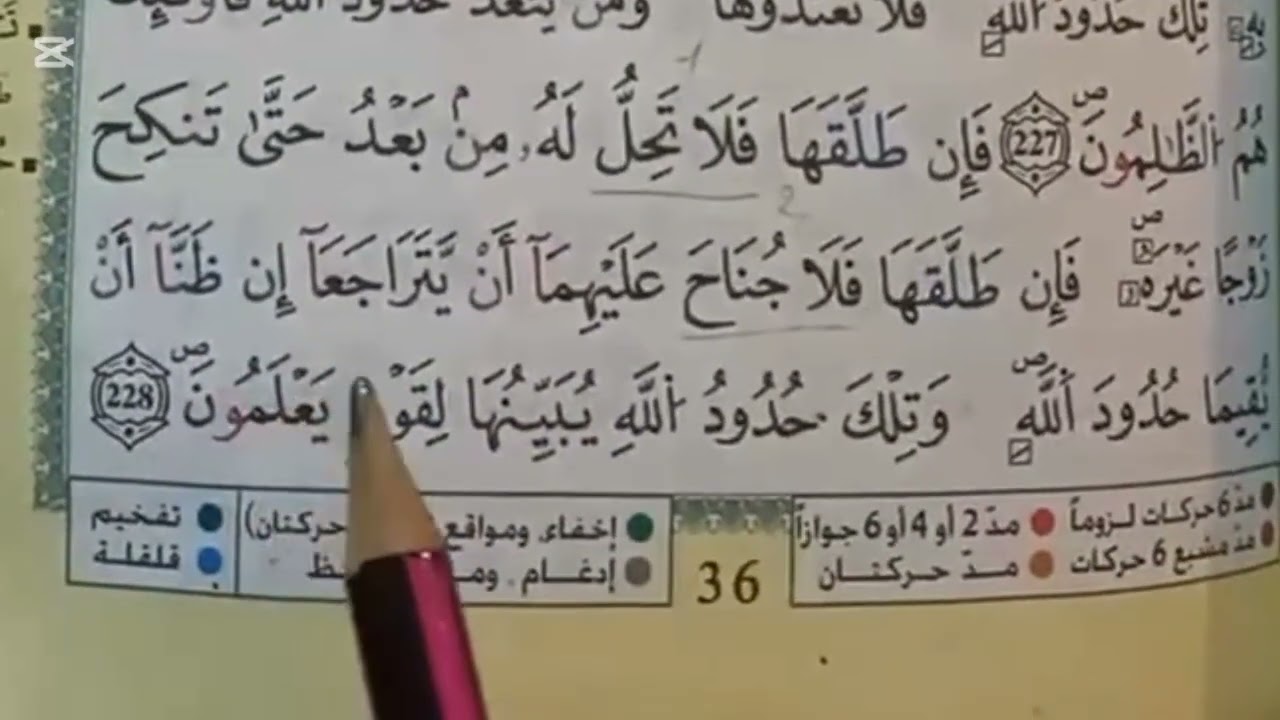 تِلْكَ حُدُودُ اللَّهِ فَلَا تَعْتَدُوهَا وَمَنْ يَتَعَدَّ حُدُودَ اللَّهِ
هُمُ اُ۬لظَّٰلِمُونَۖ 227 فَإِن طَلَّقَهَا فَلَا تَحِلُّ لَهُۥ مِنۢ بَعْدُ حَتَّىٰ تَنكِحَ
2
زَوْجًا غَيْرَهُۥۖ فَإِن طَلَّقَهَا فَلَا جُنَاحَ عَلَيْهِمَآ أَنْ يَّتَرَاجَعَآ إِن ظَنَّآ أَنْ
يُّقِيمَا حُدُودَ اَ۬للَّهِۖ وَتِلْكَ حُدُودُ اُ۬للَّهِ يُبَيِّنُهَا يَعْلَمُونَۖ 228
مدّ 6 حركات لـزوماً مدّ 2 أو 4 أو 6 جوازاً
مدّ مشبع 6 حركات مدّ حركتـان
36
إخفاء، ومواقع حركتان)
إدغـام ،
تفخيم
قلقلة